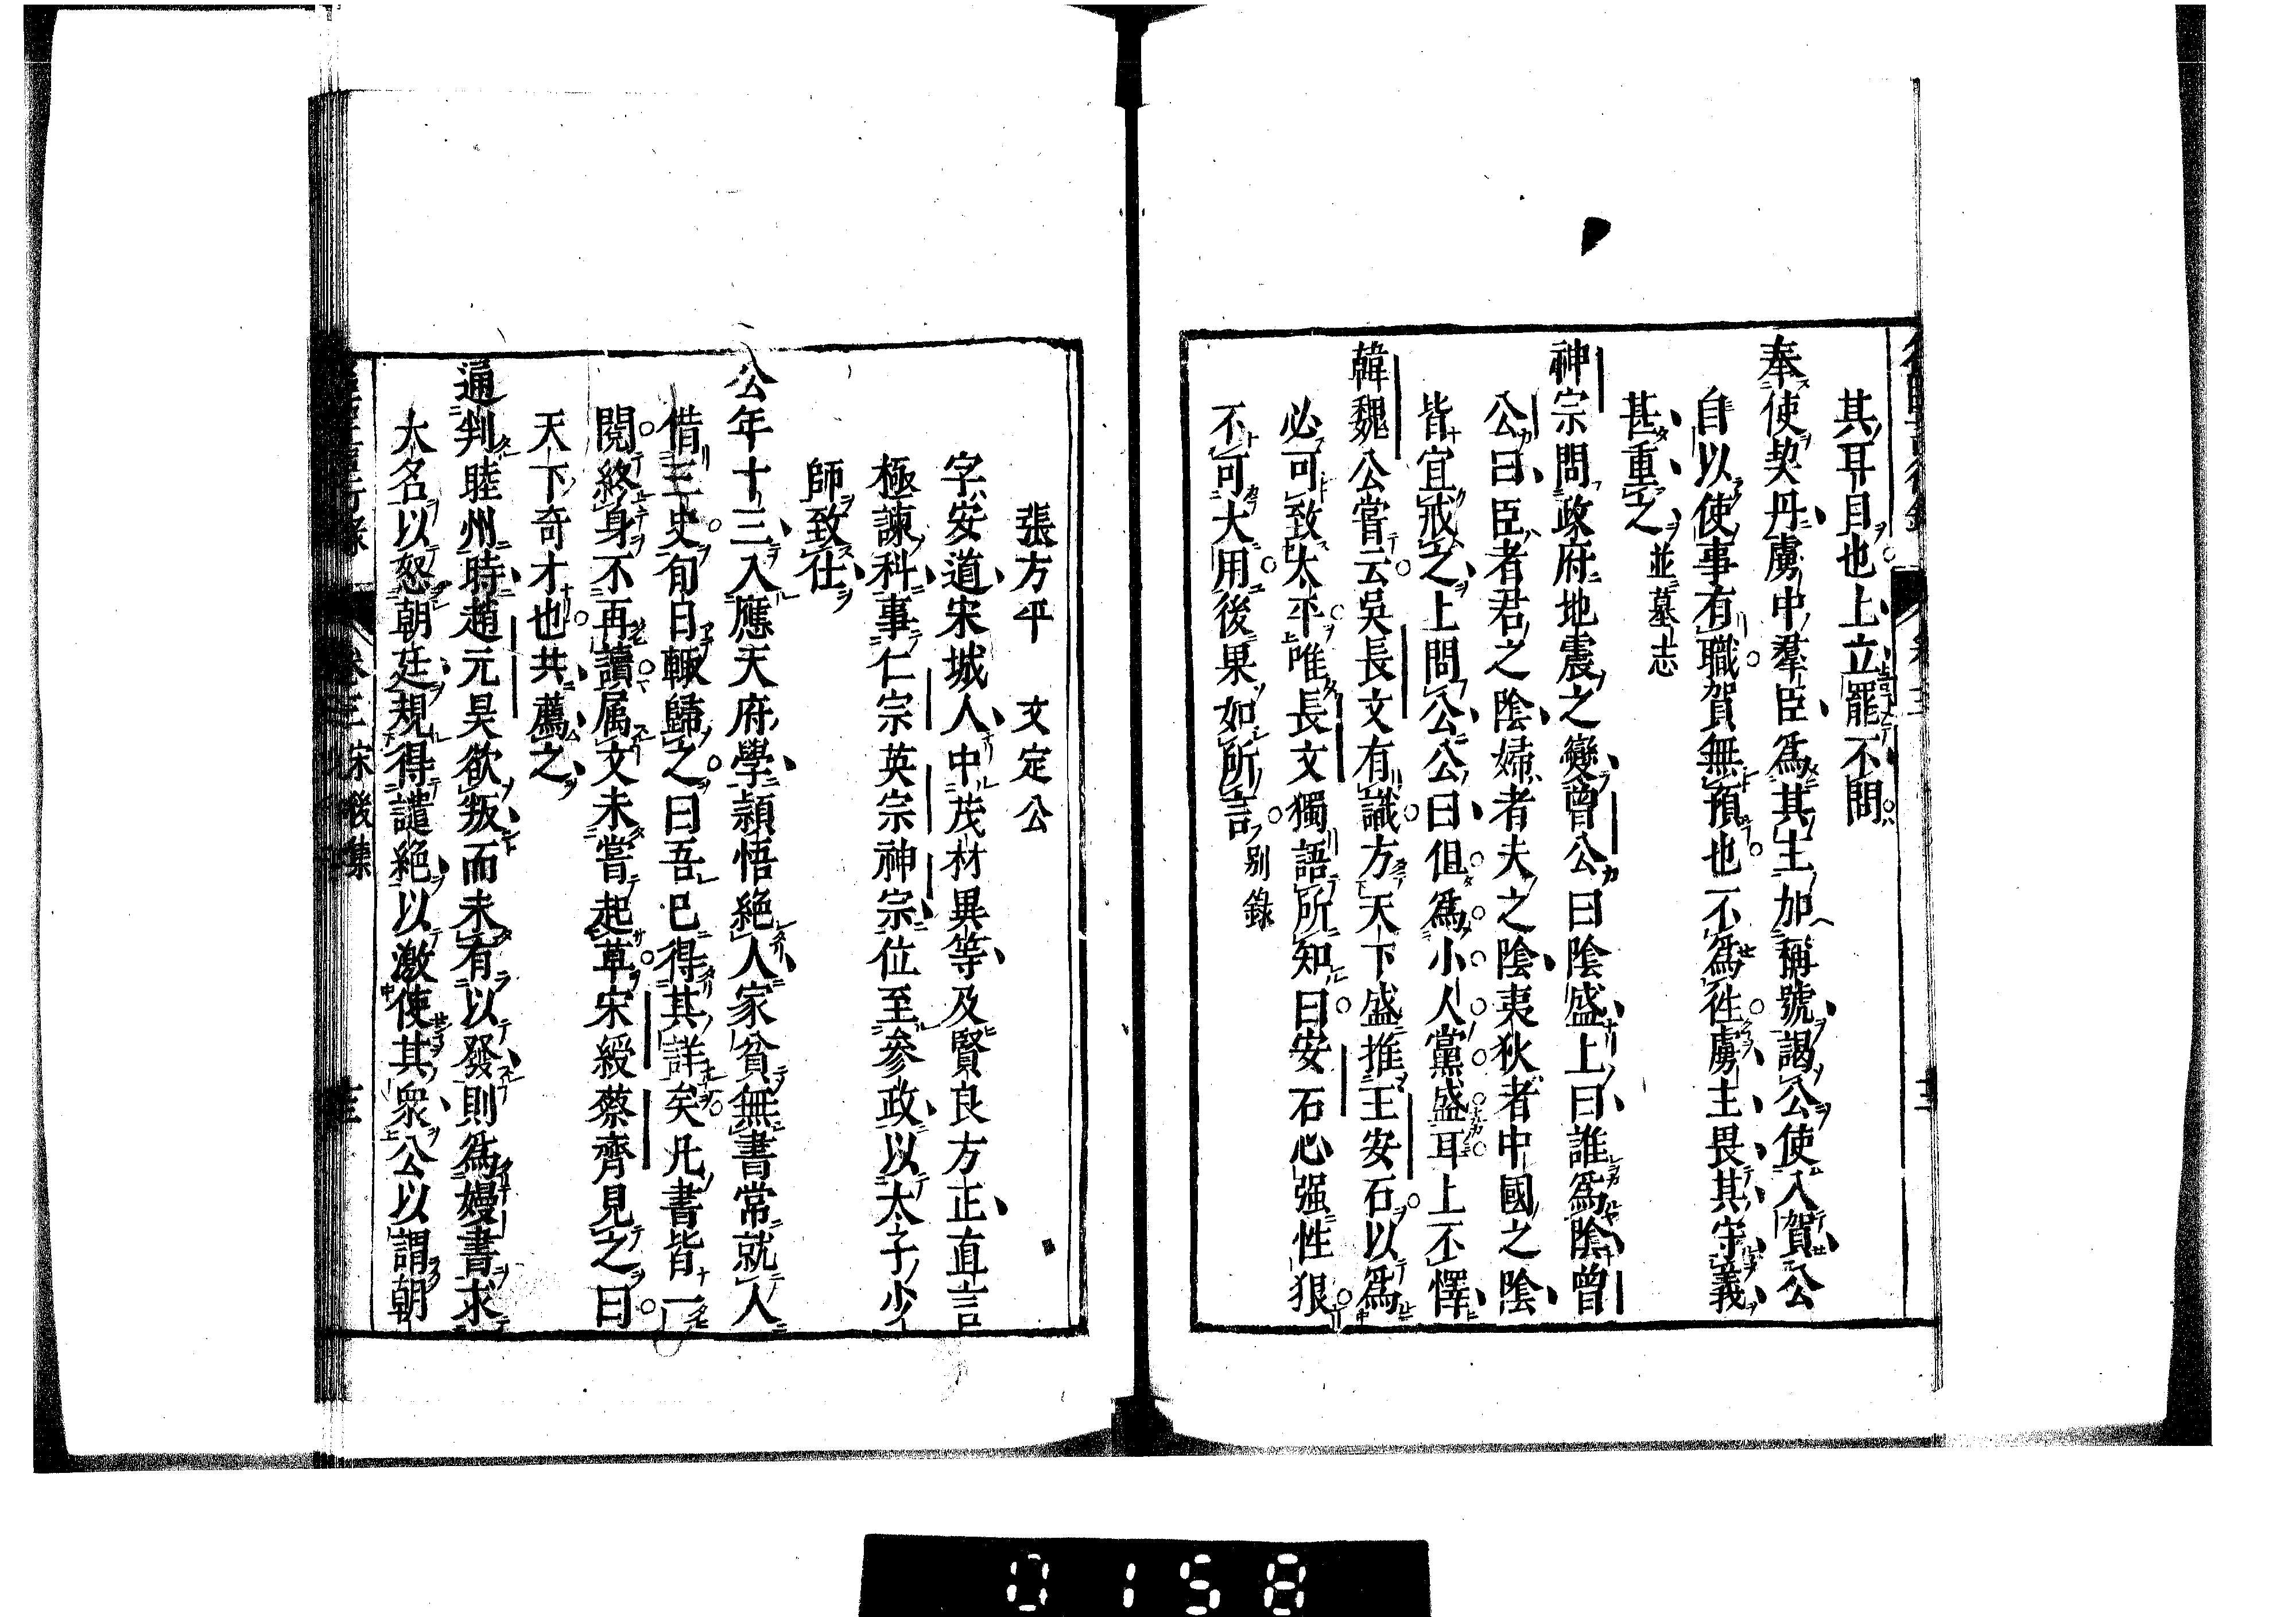 其耳目也上立罷不問
奉使契丹虜中羣臣爲其主加稱號謁公使入賀公
自以使事有職賀無預也不爲徃虜主畏其守義
甚重之並墓志
神宗問政府地震之變曾公曰陰盛上曰誰爲陰曾
公曰臣者君之陰婦者夫之陰夷狄者中國之陰
皆宜戒之上問公公曰但爲小人黨盛耳上不懌
韓魏公嘗云吳長文有識方天下盛推王安石以爲
必可致太平唯長文獨語所知曰安石心强性狠
不可大用後果如所言别錄
張方平 文定公
字安道宋城人中茂材異等及賢良方正直言
極諫科事仁宗英宗神宗位至參政以太子少
師致仕
公年十三入應天府學頴悟絶人家貧無書常就人
借三史旬日輒歸之曰吾已得其詳矣凡書皆一
閱終身不再讀属文未嘗起草宋綬蔡齊見之曰
天下奇才也共薦之
通判睦州時趙元昊欲叛而未有以發則爲嫚書求
大名以怒朝廷規得譴絶以激使其衆公以謂朝
卷三 宋後集
0158